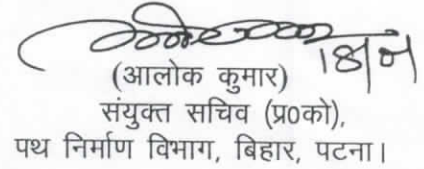 (आलोक कुमार)
संयुक्त सचिव (प्र०को),
पथ निर्माण विभाग, बिहार, पटना।